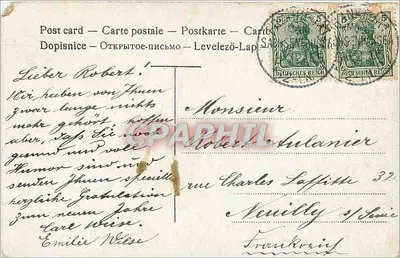 Post card – Carte postale – Postkarte –
Dopisnice – Открытое-письмо – Levelező-Lap
DEUTSCHES REICH DEUTSCHES REICH
Lieber Robert!
Wir haben von Ihnen
zwar lange nichts
mehr gehört hoffen
aber, daß Sie
gesund und voll
Humor sind und
senden Ihnen speziell
herzliche Gratulation
zum neuen Jahre
Carl Wiese.
Emilie Wiese
Monsieur
Robert Aulanier
rue Charles Laffitte 32
Neuilly s/Seine
Frankreich
DELCAMPE